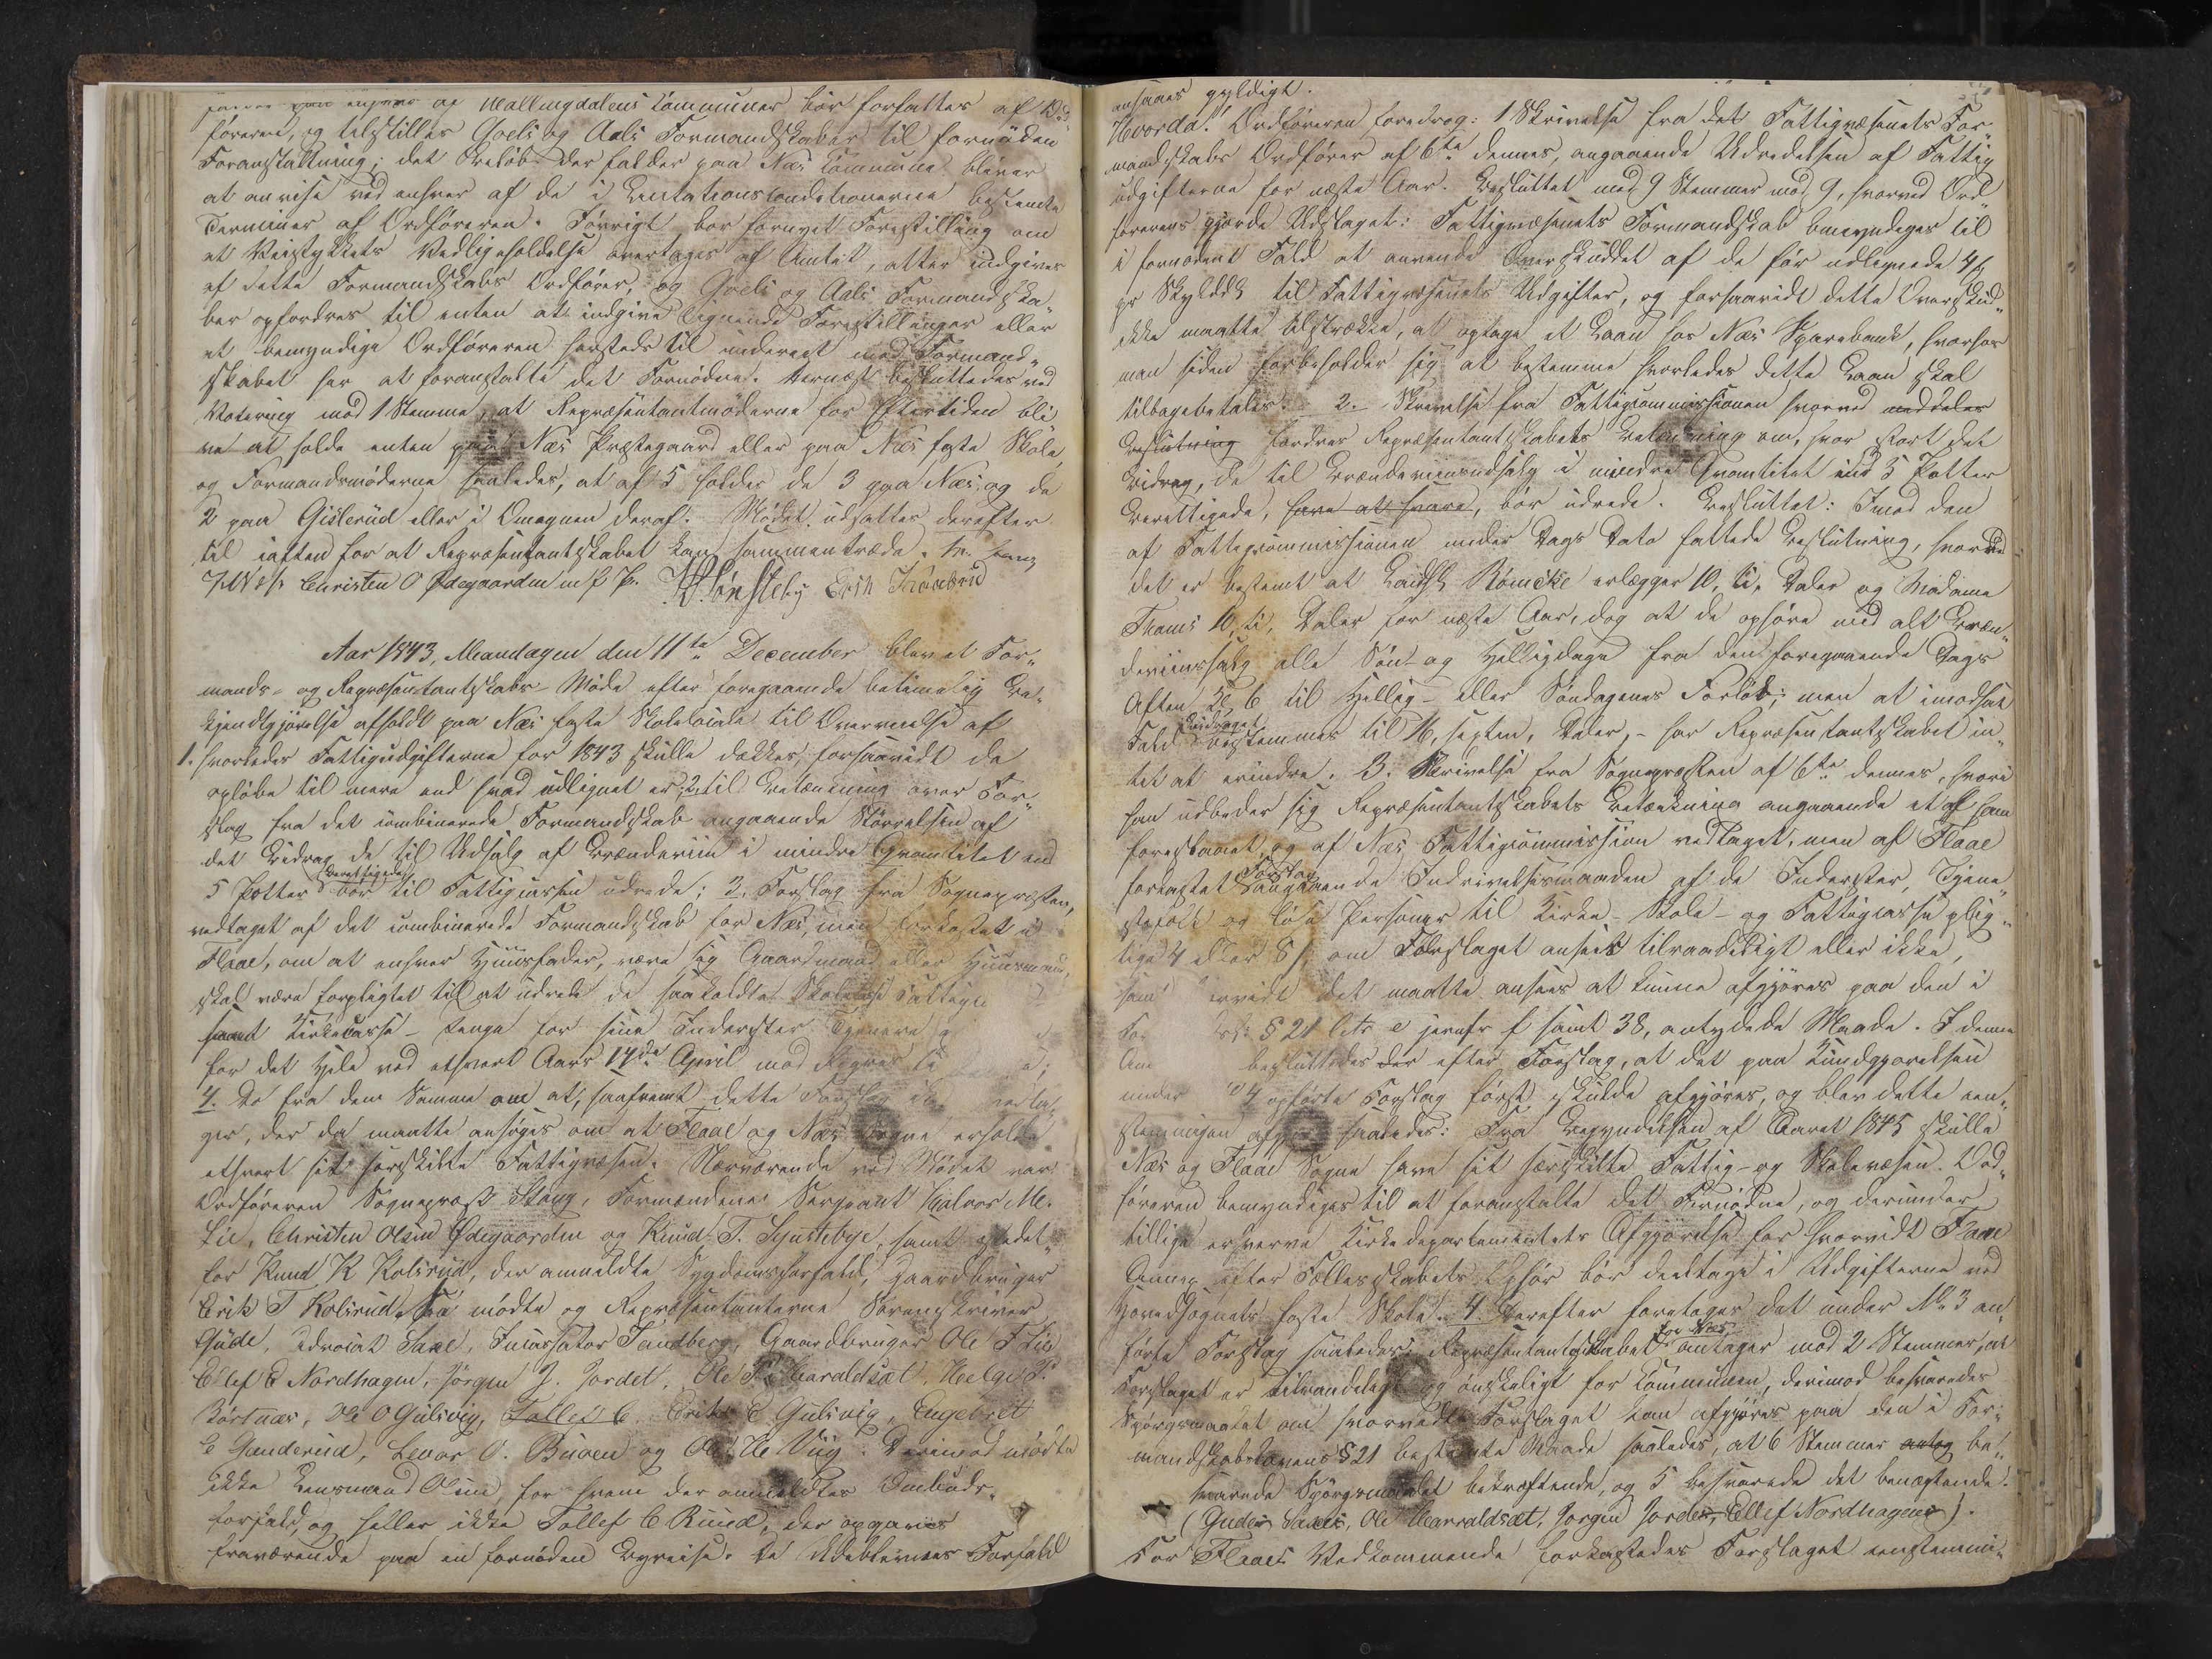 af Hallingdalens Communer bør forfattes af Ord-
føreren, og tilstilles Goels og Aals Formandskaber til fornøden
Foranstaltning; det Beløb der falder paa Næs Commune bliver
at anvise ved enhver af de i Licitationsconditionerne bestemte
Terminer af Ordføreren. Iøvrigt bør fornyet Forestilling om
at Veistykkets Vedligeholdelse overtages af Amtet, atter indgives
af dette Formandskabs Ordfører, og Goels og Aals Formandska-
ber opfordres til enten at indgive lignende Forestillinger eller
at bemyndige Ordføreren hersteds til i Foreening med Formand-
skabet her at foranstalte det Fornødne. Dernæst besluttedes ved
Votering mod 1 Stemme, at Repræsentantmøderne for Eftertiden bli-
ve at holde enten paa Næs Præstegaard eller paa Næs faste Skole,
og Formandsmøderne saaledes, at af 5 holdes de 3 paa Næs og de
2 paa Gislerud eller i Omegnen deraf. Mødet udsattes derefter
til iaften for at Repræsentantskabet kan sammentræde.
Christen O Ødegaarden m f P. HHønsteby Erik Kaasrud
Aar 1843, Mandagen den 11te December blev et For-
mands- og Repræsentantskabs-Møde efter foregaaende betimelig Be-
kjendtgjørelse afholdt paa Næs faste Skolelocale til Overveielse af
1. hvorledes Fattigudgifterne for 1843 skulle dækkes, forsaavidt de
opløbe til mere end hvad udlignet er; 2, til Betænkning over For-
slag fra det combinerede Formandskab angaaende Størrelsen af
det Bidrag de til Udsalg af Brændeviin i mindre Qvantitet end
5 Potter (berettigede) bør til Fattigcassen udrede; 3. Forslag fra Sognepræsten,
vedtaget af det combinerede Formandskab for Næs, men forkastet i
Flaae, om at enhver Huusfader, være sig Gaardmand eller Huusmand,
skal være forpligtet til at udrede de saakaldte Skolecasse Fattigc
samt Kirkecasse-Penge for sine Inderster Tjenere
for det Hele ved ethvert Aars 14de April mod Regres
4. Do fra den Samme om at, saafremt dette Forslag vedta-
ges, der da maatte ansøges om at Flaae og Næs Sogne erholdt
ethvert sit særskilte Fattigvæsen. Nærværende ved Mødet var
Ordføreren Sognepræst Stang, Formændene Sergeant Halvor M.
Lie, Christen Olsen Ødegaarden og Knud T. Synsteby, samt istedet-
for Knud K Kolsrud, der anmeldte Sygdomsforfald, Gaardbruger
Erik T Kolsrud, mødte og Repræsentanterne Sorenskriver
Gude, Advocat Saxe, Incassator Sandberg, Gaardbruger Ole T Lie
Ellef E Nordhagen, Jørgen J. Jordet, Ole T. Haraldsæt, Helge T.
Børtnæs, Ole O Gulsvig, Tollef C. Erik E Gulsvig, Engebret
E Ganderud, Levor O. Bøen og Ole H Viig. Derimod mødte
ikke Lensmand Olsen, for hvem der anmeldtes Ombuds-
forfald, og heller ikke Tollef C Ruud, der opgaves
fraværende paa en fornøden Byreise. De Udeblevnes Forfald
ansaaes gyldigt.
Hvorda! Ordføreren foredrog: 1 Skrivelse fra det Fattigvæsenets For-
mandskabs Ordfører af 6te dennes, angaaende Udredelsen af Fattig
udgifterne for næste Aar. Besluttet med 9 Stemmer mod 9, hvorved Ord-
førerens gjorde Udslaget: Fattigvæsenets Formandskab bemyndiges til
i fornødent Fald at anvende Overskuddet af de før udlignede 4/
pr Skylddlr til Fattigvæsenets Udgifter, og forsaavidt dette Overskud
ikke maatte tilstrække, at optage et Laan hos Næs Sparebank, hvorhos
man siden forbeholder sig at bestemme hvorledes dette Laan skal
tilbagebetales. 2. Skrivelse fra Fattigcommissionen hvorved meddeles
Beslutning fordres Repræsentantskabets Betænkning om, hvor stort det
Bidrag, de til Brændeviinsudsalg i mindre Qvantitet end 5 Potter
Berettigede, have at svare, bør udrede. Besluttet: Imod den
af Fattigcommissionen under Dags Dato fattede Beslutning, hvorved
det er bestemt at Landh. Rømcke erlægger 10, ti, Daler og Madame
Thoms 10, ti, Daler for næste Aar, dog at de ophøre med alt Bræn-
deviinssalg alle Søn- og Helligdage fra den foregaaende Dags
Aften Kl 6 til Hellig- eller Søndagenes Forløb; men at i modsat
Fald Bidraget bestemmes til 16, sexten, Daler, - har Repræsentantskabet in-
tet at erindre. 3. Skrivelse fra Sognepræsten af 6te dennes, hvori
han udbeder sig Repræsentantskabets Betænkning angaaende et af ham
foreslaaet, og af Næs Fattigcommission vedtaget, men af Flaae
forkastet Forslag angaaende Inddrivelsesmaaden af de Inderster, Tjene-
stefolk og løse Personer til Kirke- Skole- og Fattigcasse plig-
tige 4 eller 8 /, om Forslaget ansees tilraadeligt eller ikke,
samt hvorvidt det maatte ansees at kunne afgjøres paa den i
For § 21 litr e jevnfr f samt 38, antydede Maade. I denne
An besluttedes der efter Forslag, at det paa Kundgjørelsen
under No 4 opførte Forslag først skulde afgjøres, og blev dette een-
stemmigen afgjort saaledes: Fra Begyndelsen af Aaret 1845 skulle
Næs og Flaae Sogne have sit særskilte Fattig- og Skolevæsen. Ord-
føreren bemyndiges til at foranstalte det Fornødne, og derunder
tillige erhverve Kirkedepartementets Afgjørelse for hvorvidt Flaae
Annex efter Fællesskabets Ophør bør deeltage i Udgifterne ved
Hovedsognets faste Skole. 4. Derefter foretoges det under No 3 an-
førte Forslag saaledes: Repræsentantskabet for Næs antager mod 2 Stemmer, at
Forslaget er tilraadeligt og ønskeligt for Communen, derimod besvaredes
Spørgsmaalet om hvorvidt Forslaget kan afgjøres paa den i For-
mandskabslovens § 21 bestemte Maade saaledes, at 6 Stemmer antog be-
svarede Spørgsmaalet bekræftende, og 5 besvarede det benægtende.
(Gude, Saxe, Ole Harraldsæt, Jørgen Jordet, Ellef Nordhagen).
For Flaaes Vedkommende forkastedes Forslaget eenstemmi-